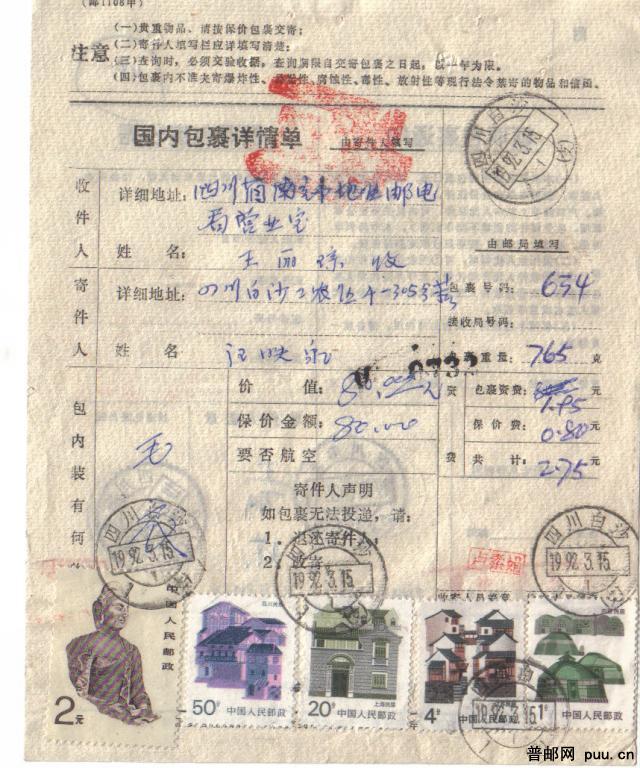 (邮1108甲)
注意
(一)贵重物品、请按保价包裹交寄;
(二)寄件人填写栏应详填写清楚;
(三)查询时,必须交验收据,查询期限自交寄包裹之日起,以一年为限。
(四)包裹内不准夹寄爆炸性、易燃性、腐蚀性、毒性、放射性等现行法令禁寄的物品和信函。
国内包裹详情单
由寄件人填写
四川白沙
1992.3.15
收件人
详细地址:四川省南充市地区邮电
局营业室
姓名:王丽琼 收
由邮局填写
寄件人
详细地址:四川白沙工农区
姓名
包裹号码:654
接收局号码:
包裹重量:765克
0733
包内装有何
价值:80.00元
保价金额:80.00
要否航空
资费
包裹资费:1.95元
保价费:0.80元
共计:2.75元
毛
衣
寄件人声明
如包裹无法投递,请:
1、退还寄件人:
2、改寄
四川白沙
1992.3.15
四川白沙
1992.3.15
四川白沙
1992.3.15
1992.3.15
中国人民邮政
2元
四川民居
50分
中国人民邮政
上海民居
20分
中国人民邮政
4分
中国人民邮政
1分
中国人民邮政
普邮网 puu.cn